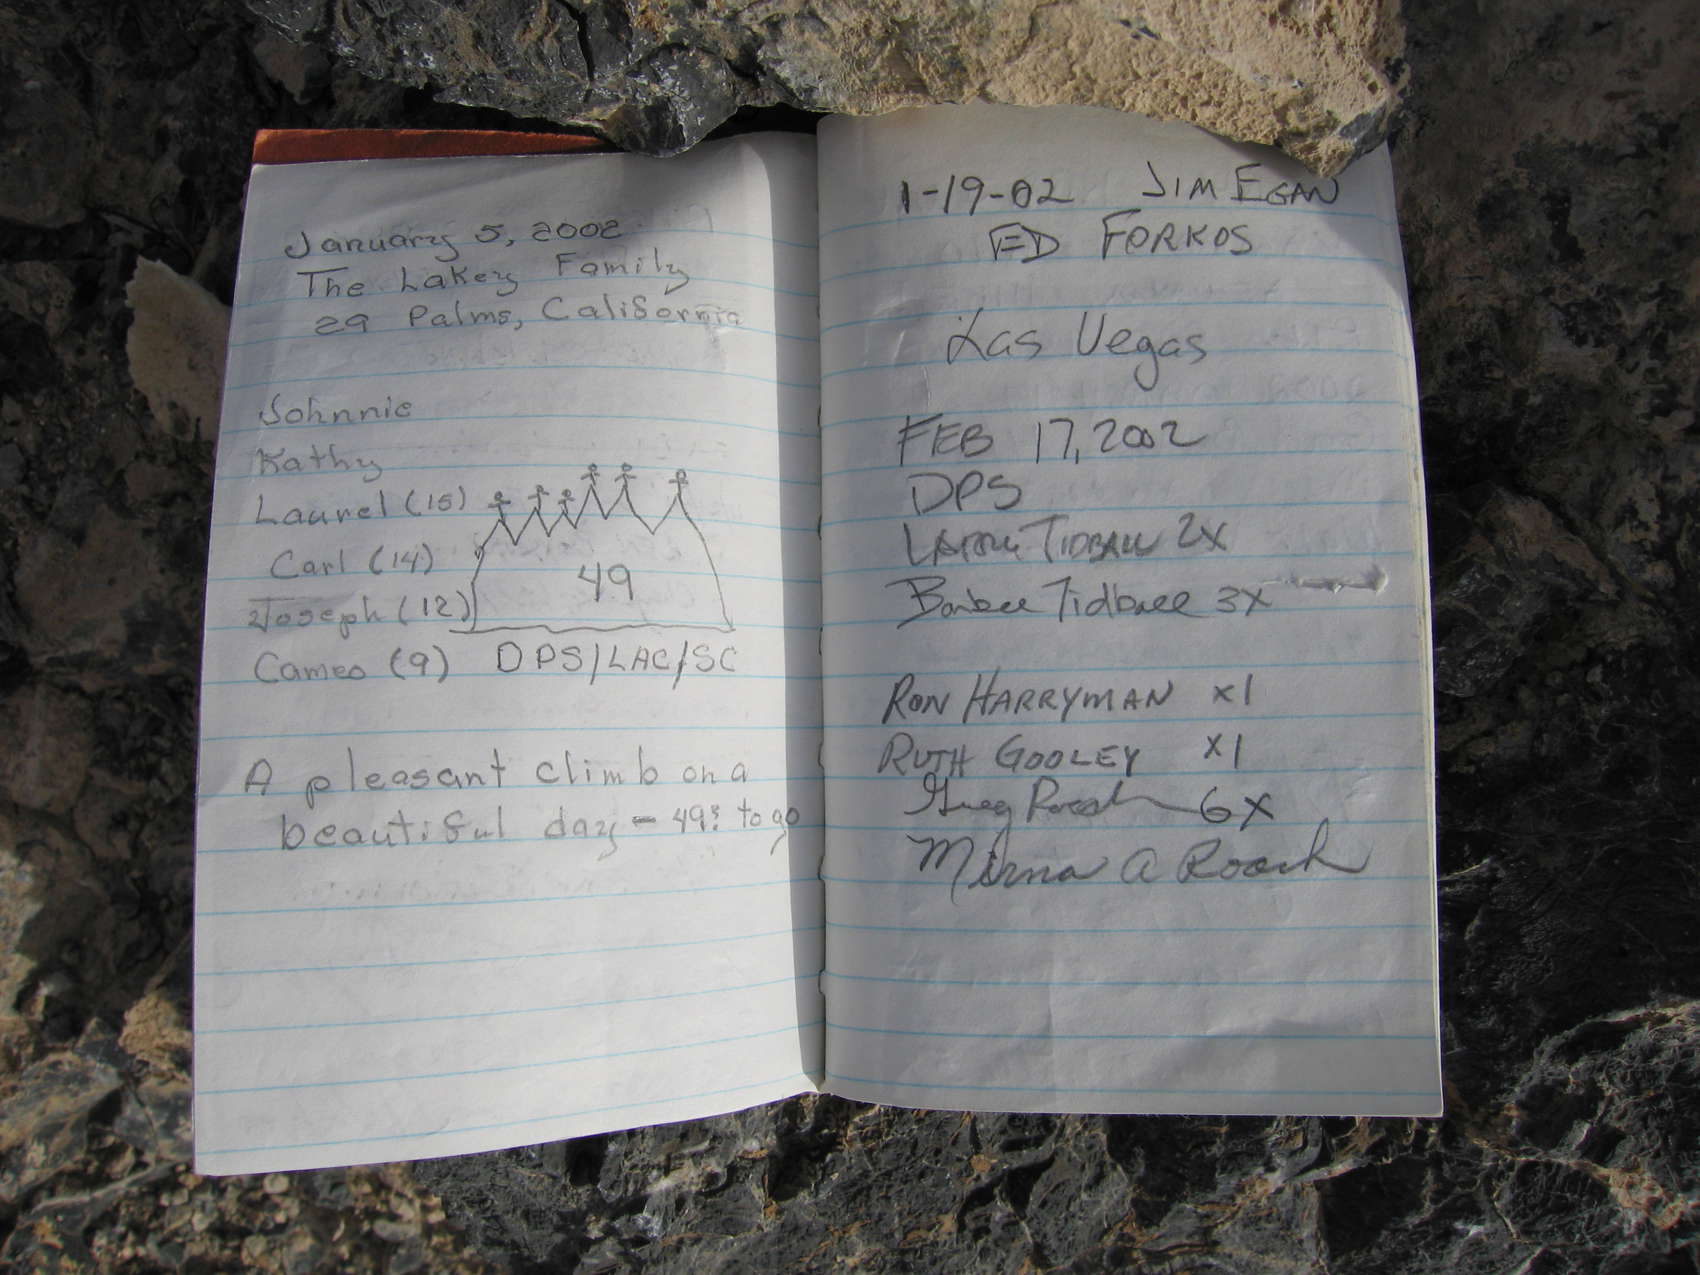 January 5, 2002
The Lakey Family
29 Palms, California
Johnnie
Kathy
Laurel (15)
Carl (14)
Joseph (12)
Cameo (9)
49
DPS/LAC/SC
A pleasant climb on a
beautiful day - 49 to go
1-19-02 JIM EGAN
ED FORKOS
Las Vegas
FEB 17, 2002
DPS
TIDBALL 2X
Barbee Tidball 3X
RON HARRYMAN x1
RUTH GOOLEY x1
Greg Roach 6X
Mirna A Roach